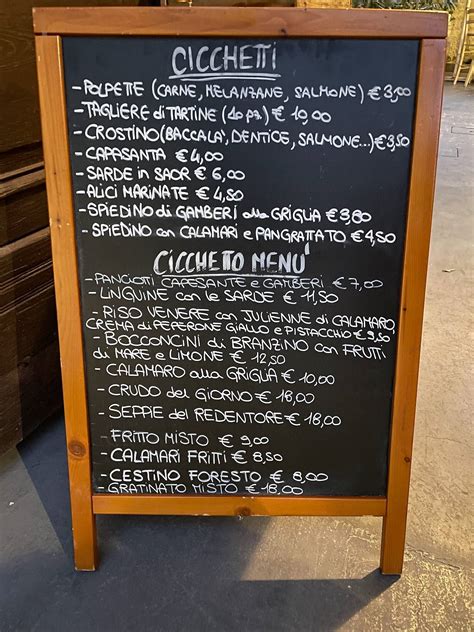 CICCHETTI
- POLPETTE (CARNE, MELANZANE, SALMONE) € 3,00
- TAGLIERE di TARTINE (10 pz.) € 19,00
- CROSTINO (BACCALA', DENTICE, SALMONE...) € 3,50
- CAPASANTA € 4,00
- SARDE in SAOR € 6,00
- ALICI MARINATE € 4,50
- SPIEDINO di GAMBERI alla GRIGLIA €
- SPIEDINO con CALAMARI e PANGRATTATO € 4,50
CICCHETTO MENU'
- PANCIOTTI CAPESANTE e GAMBERI € 7,00
- LINGUINE con le SARDE € 11,50
- RISO VENERE con JULIENNE di CALAMARO,
CREMA di PEPERONE GIALLO e PISTACCHIO € 9,50
- BOCCONCINI di BRANZINO con FRUTTI
di MARE e LIMONE € 12,50
- CALAMARO alla GRIGLIA € 10,00
- CRUDO del GIORNO € 18,00
- SEPPIE del REDENTORE € 18,00
- FRITTO MISTO € 9,00
- CALAMARI FRITTI € 8,50
- CESTINO FORESTO € 8,00
- GRATINATO MISTO € 18,00